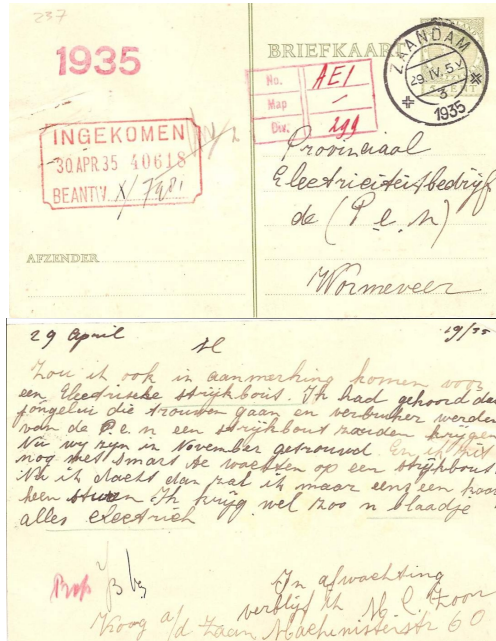 237
1935
BRIEFKAART
ZAANDAM
29.IV. 5.V
3
1935
5 CENT
No. AE1
Map -
Biw. 299
INGEKOMEN
30 APR 35 40618
BEANTW.
Provinciaal
Electriciteitsbedrijf
de (P.e.n)
Wormeveer
AFZENDER
29 April 19/35
M
Zou ik ook in aanmerking komen voor
een Electriseke strijkbout. Ik had gehoord dat
jongelui die trouwen gaan en verbruiker werden
van de P.e.n een strijkbout zouden krijgen
Nu wy zyn in November getrouwd. En ik zit
nog met smart te wachten op een strijkbout
Nu ik dacht dan zal ik maar eens een kaart
heen sturen Ik krijg wel zoo n blaadje
alles electrich
In afwachting
verblijf ik M C Zoon
Koog a/d Zaan Machenisterstr 60